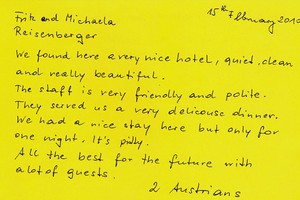 Fritz and Michaela
15th February 2010
Reisenberger
We found here a very nice hotel, quiet, clean
and really beautiful.
The staff is very friendly and polite.
They served us a very delicouse dinner.
We had a nice stay here but only for
one night. It's pitty.
All the best for the future with
a lot of guests.
2 Austrians